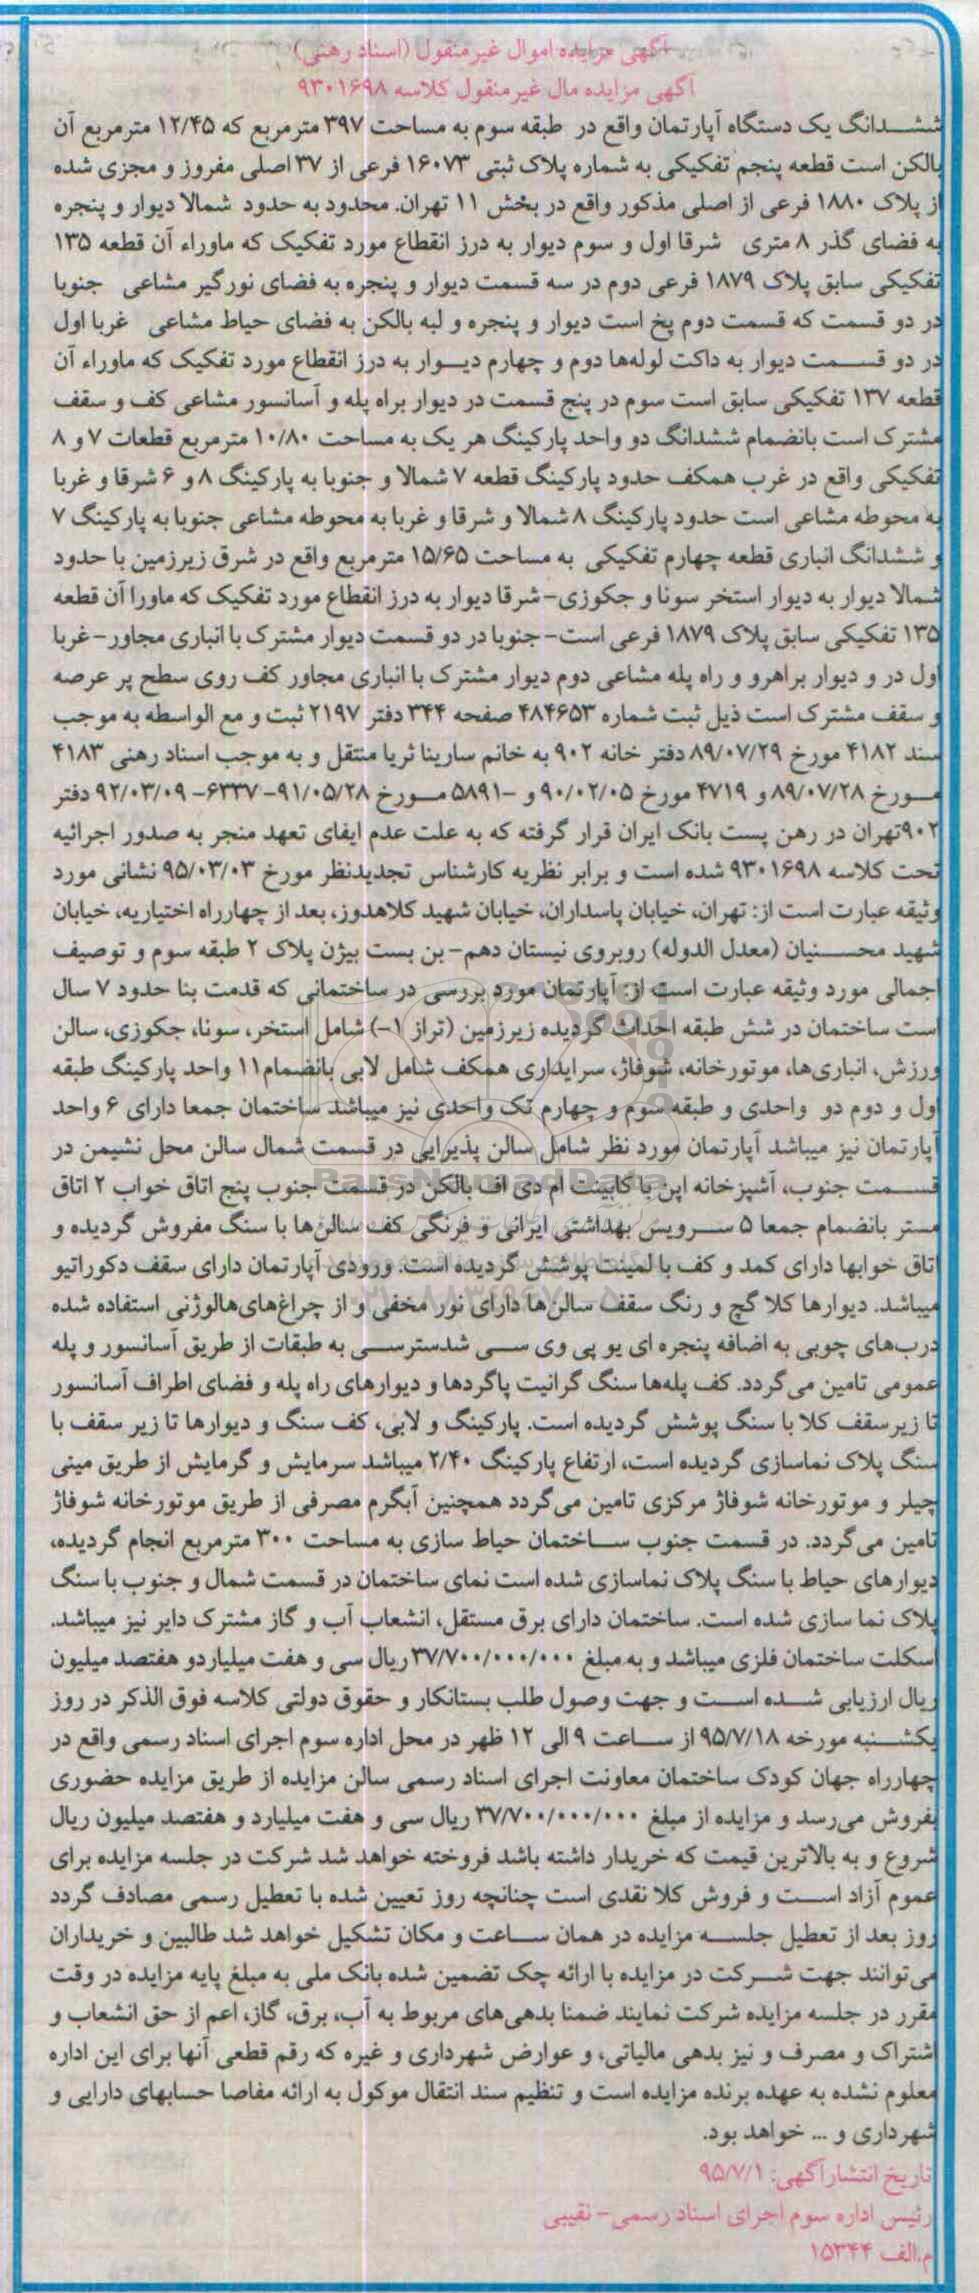 آگهی مزایده اموال غیرمنقول (اسناد رهنی)
آگهی مزایده مال غیرمنقول کلاسه ۹۳۰۱۶۹۸
ششدانگ یک دستگاه آپارتمان واقع در طبقه سوم به مساحت ۳۹۷ مترمربع که ۱۲/۴۵ مترمربع آن
بالکن است قطعه پنجم تفکیکی به شماره پلاک ثبتی ۱۶۰۷۳ فرعی از ۳۷ اصلی مفروز و مجزی شده
از پلاک ۱۸۸۰ فرعی از اصلی مذکور واقع در بخش ۱۱ تهران. محدود به حدود شمالا دیوار و پنجره
به فضای گذر ۸ متری شرقا اول و سوم دیوار به درز انقطاع مورد تفکیک که ماوراء آن قطعه ۱۳۵
تفکیکی سابق پلاک ۱۸۷۹ فرعی دوم در سه قسمت دیوار و پنجره به فضای نورگیر مشاعی جنوبا
در دو قسمت که قسمت دوم پخ است دیوار و پنجره و لبه بالکن به فضای حیاط مشاعی غربا اول
در دو قسمت دیوار به داکت لوله‌ها دوم و چهارم دیوار به درز انقطاع مورد تفکیک که ماوراء آن
قطعه ۱۳۷ تفکیکی سابق است سوم در پنج قسمت در دیوار براه پله و آسانسور مشاعی کف و سقف
مشترک است بانضمام ششدانگ دو واحد پارکینگ هر یک به مساحت ۱۰/۸۰ مترمربع قطعات ۷ و ۸
تفکیکی واقع در غرب همکف حدود پارکینگ قطعه ۷ شمالا و جنوبا به پارکینگ ۸ و ۶ شرقا و غربا
به محوطه مشاعی است حدود پارکینگ ۸ شمالا و شرقا و غربا به محوطه مشاعی جنوبا به پارکینگ ۷
و ششدانگ انباری قطعه چهارم تفکیکی به مساحت ۱۵/۶۵ مترمربع واقع در شرق زیرزمین با حدود
شمالا دیوار به دیوار استخر سونا و جکوزی- شرقا دیوار به درز انقطاع مورد تفکیک که ماورا آن قطعه
۱۳۵ تفکیکی سابق پلاک ۱۸۷۹ فرعی است- جنوبا در دو قسمت دیوار مشترک با انباری مجاور- غربا
اول در و دیوار براهرو و راه پله مشاعی دوم دیوار مشترک با انباری مجاور کف روی سطح پر عرصه
و سقف مشترک است ذیل ثبت شماره ۴۸۴۶۵۳ صفحه ۳۴۴ دفتر ۲۱۹۷ ثبت و مع الواسطه به موجب
سند ۴۱۸۲ مورخ ۸۹/۰۷/۲۹ دفتر خانه ۹۰۲ به خانم سارینا ثریا منتقل و به موجب اسناد رهنی ۴۱۸۳
مورخ ۸۹/۰۷/۲۸ و ۴۷۱۹ مورخ ۹۰/۰۲/۰۵ و -۵۸۹۱ مورخ ۹۱/۰۵/۲۸- ۶۳۳۷- ۹۲/۰۳/۰۹ دفتر
۹۰۲تهران در رهن پست بانک ایران قرار گرفته که به علت عدم ایفای تعهد منجر به صدور اجرائیه
تحت کلاسه ۹۳۰۱۶۹۸ شده است و برابر نظریه کارشناس تجدیدنظر مورخ ۹۵/۰۳/۰۳ نشانی مورد
وثیقه عبارت است از: تهران، خیابان پاسداران، خیابان شهید کلاهدوز، بعد از چهارراه اختیاریه، خیابان
شهید محسنیان (معدل الدوله) روبروی نیستان دهم- بن بست بیژن پلاک ۲ طبقه سوم و توصیف
اجمالی مورد وثیقه عبارت است از: آپارتمان مورد بررسی در ساختمانی که قدمت بنا حدود ۷ سال
است ساختمان در شش طبقه احداث گردیده زیرزمین (تراز ۱-) شامل استخر، سونا، جکوزی، سالن
ورزش، انباری‌ها، موتورخانه، شوفاژ، سرایداری همکف شامل لابی بانضمام۱۱ واحد پارکینگ طبقه
اول و دوم دو واحدی و طبقه سوم و چهارم تک واحدی نیز میباشد ساختمان جمعا دارای ۶ واحد
آپارتمان نیز میباشد آپارتمان مورد نظر شامل سالن پذیرایی در قسمت شمال سالن محل نشیمن در
قسمت جنوب، آشپزخانه اپن با کابینت ام دی اف بالکن در قسمت جنوب پنج اتاق خواب ۲ اتاق
مستر بانضمام جمعا ۵ سرویس بهداشتی ایرانی و فرنگی کف سالن‌ها با سنگ مفروش گردیده و
اتاق خوابها دارای کمد و کف با لمینت پوشش گردیده است. ورودی آپارتمان دارای سقف دکوراتیو
میباشد. دیوارها کلا گچ و رنگ سقف سالن‌ها دارای نور مخفی و از چراغ‌های‌هالوژنی استفاده شده
درب‌های چوبی به اضافه پنجره ای یو پی وی سی شدسترسی به طبقات از طریق آسانسور و پله
عمومی تامین می‌گردد. کف پله‌ها سنگ گرانیت پاگردها و دیوارهای راه پله و فضای اطراف آسانسور
تا زیرسقف کلا با سنگ پوشش گردیده است. پارکینگ و لابی، کف سنگ و دیوارها تا زیر سقف با
سنگ پلاک نماسازی گردیده است، ارتفاع پارکینگ ۲/۴۰ میباشد سرمایش و گرمایش از طریق مینی
چیلر و موتورخانه شوفاژ مرکزی تامین می‌گردد همچنین آبگرم مصرفی از طریق موتورخانه شوفاژ
تامین می‌گردد. در قسمت جنوب ساختمان حیاط سازی به مساحت ۳۰۰ مترمربع انجام گردیده،
دیوارهای حیاط با سنگ پلاک نماسازی شده است نمای ساختمان در قسمت شمال و جنوب با سنگ
پلاک نما سازی شده است. ساختمان دارای برق مستقل، انشعاب آب و گاز مشترک دایر نیز میباشد.
اسکلت ساختمان فلزی میباشد و به مبلغ ۳۷/۷۰۰/۰۰۰/۰۰۰ ریال سی و هفت میلیاردو هفتصد میلیون
ریال ارزیابی شده است و جهت وصول طلب بستانکار و حقوق دولتی کلاسه فوق الذکر در روز
یکشنبه مورخه ۹۵/۷/۱۸ از ساعت ۹ الی ۱۲ ظهر در محل اداره سوم اجرای اسناد رسمی واقع در
چهارراه جهان کودک ساختمان معاونت اجرای اسناد رسمی سالن مزایده از طریق مزایده حضوری
بفروش می‌رسد و مزایده از مبلغ ۳۷/۷۰۰/۰۰۰/۰۰۰ ریال سی و هفت میلیارد و هفتصد میلیون ریال
شروع و به بالاترین قیمت که خریدار داشته باشد فروخته خواهد شد شرکت در جلسه مزایده برای
عموم آزاد است و فروش کلا نقدی است چنانچه روز تعیین شده با تعطیل رسمی مصادف گردد
روز بعد از تعطیل جلسه مزایده در همان ساعت و مکان تشکیل خواهد شد طالبین و خریداران
می‌توانند جهت شرکت در مزایده با ارائه چک تضمین شده بانک ملی به مبلغ پایه مزایده در وقت
مقرر در جلسه مزایده شرکت نمایند ضمنا بدهی‌های مربوط به آب، برق، گاز، اعم از حق انشعاب و
اشتراک و مصرف و نیز بدهی مالیاتی، و عوارض شهرداری و غیره که رقم قطعی آنها برای این اداره
معلوم نشده به عهده برنده مزایده است و تنظیم سند انتقال موکول به ارائه مفاصا حسابهای دارایی و
شهرداری و ... خواهد بود.
تاریخ انتشارآگهی: ۹۵/۷/۱
رئیس اداره سوم اجرای اسناد رسمی- نقیبی
م.الف ۱۵۳۴۴